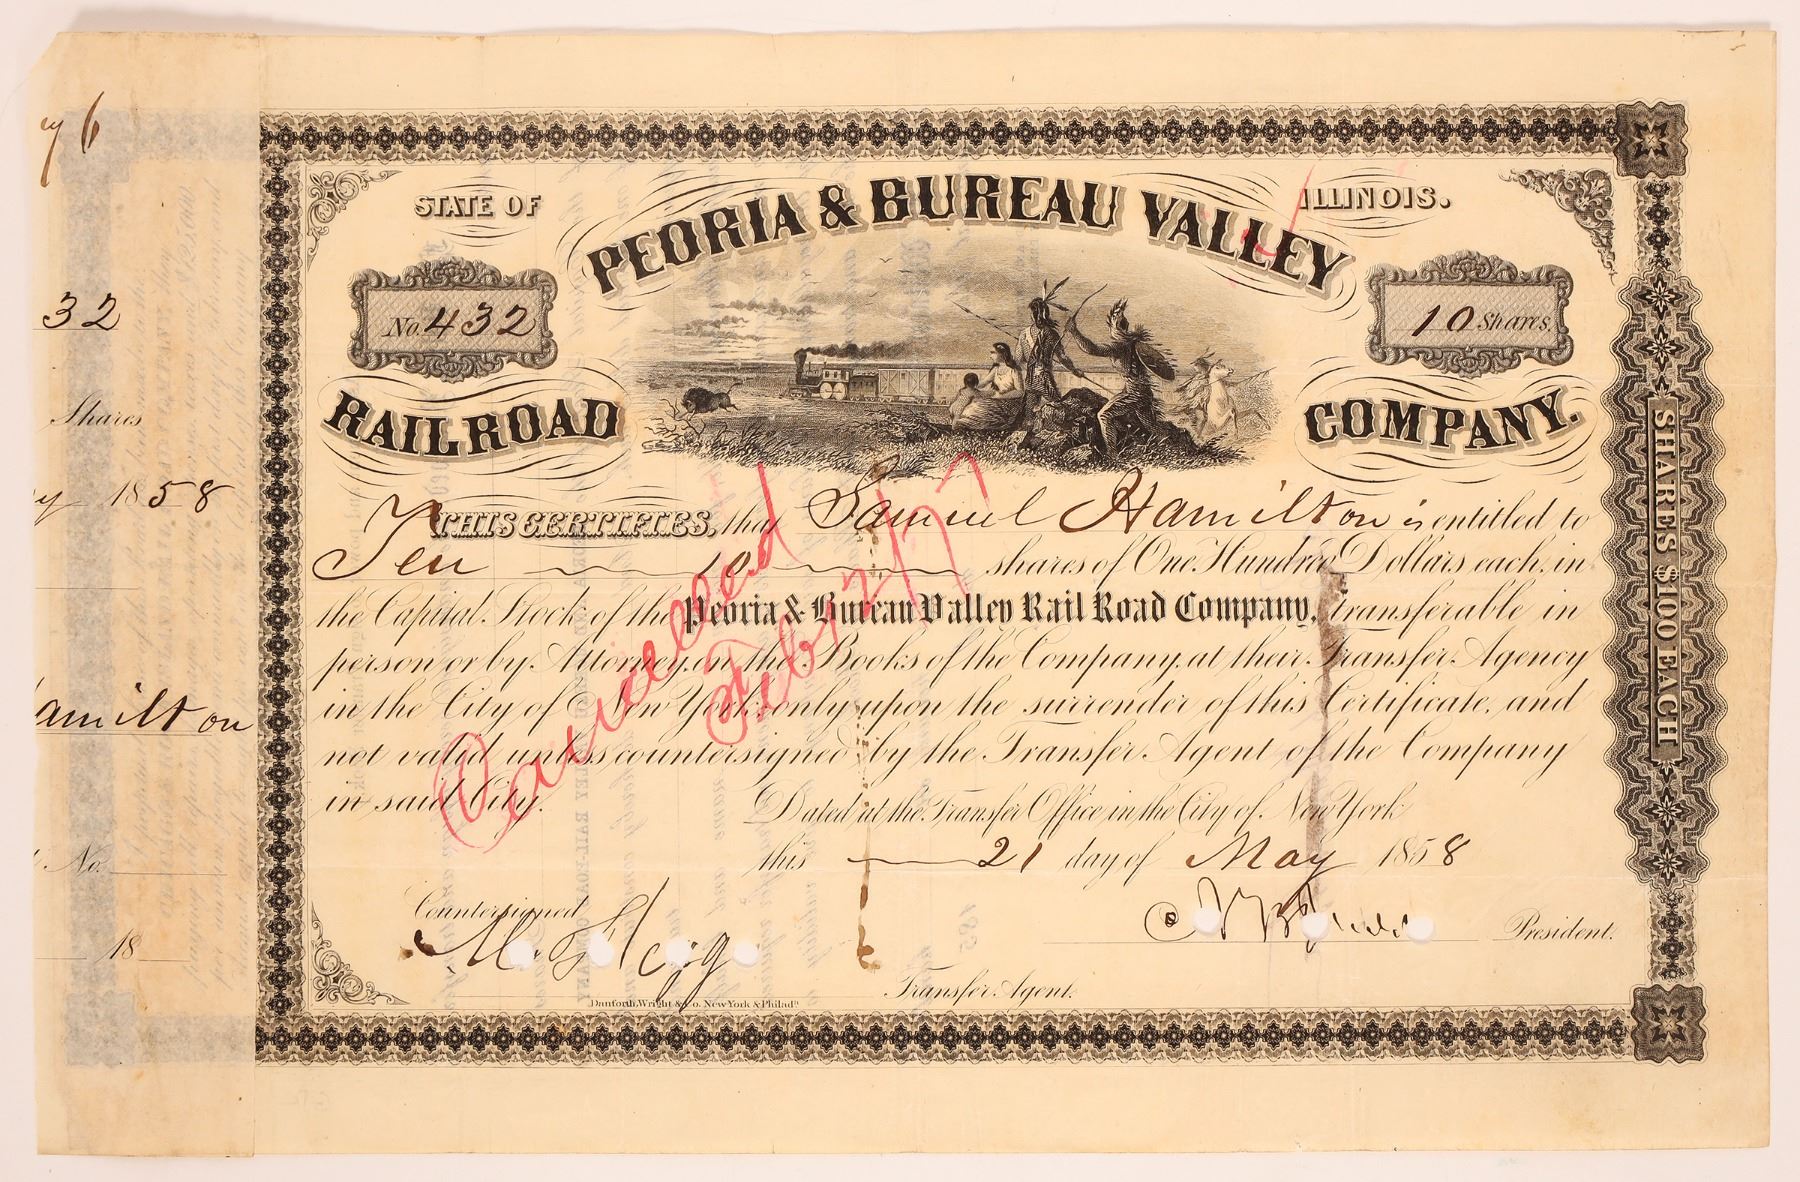 STATE OF
ILLINOIS.
PEORIA & BUREAU VALLEY
No. 432
10 Shares.
RAILROAD
COMPANY.
THIS CERTIFIES, that Samuel Hamilton is entitled to
Ten 10 shares of One Hundred Dollars each, in
the Capital Stock of the Peoria & Bureau Valley Rail Road Company, transferable in
person or by Attorney, on the Books of the Company, at their Transfer Agency
in the City of New York, only upon the surrender of this Certificate, and
not valid unless countersigned by the Transfer Agent of the Company
in said City.
Dated at the Transfer Office in the City of New York
this 21 day of May 1858
Countersigned
President.
Transfer Agent.
Danforth, Wright & Co. New York & Philada
SHARES $100 EACH
Cancelled
Feby 2/77
32
Shares
y 1858
amilton
No.
18